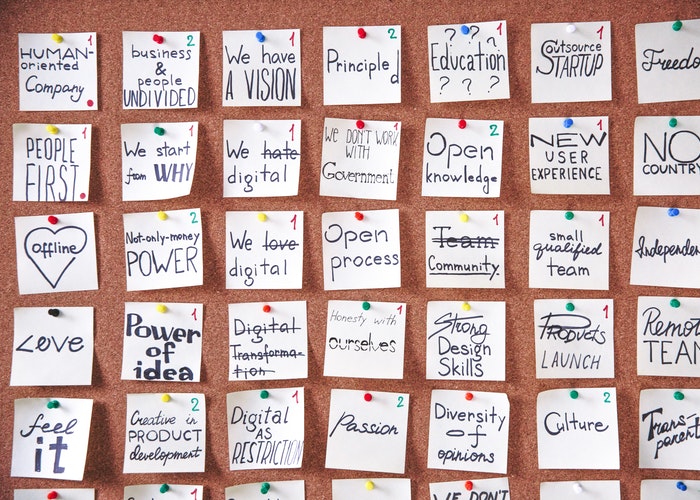 HUMAN-
oriented
Company
1
business
&
people
UNDIVIDED
2
We have
A VISION
1
Principled
2
? ? ?
Education
? ? ?
1
Outsource
STARTUP
1
Freedo
PEOPLE
FIRST
1
We start
from WHY
1
We hate
digital
1
WE DON'T WORK
WITH
Government
1
Open
knowledge
2
NEW
USER
EXPERIENCE
1
NO
COUNTRY
offline
Not-only-money
POWER
2
We love
digital
1
Open
process
1
Team
Community
1
small
qualified
team
1
Independen
Love
Power
of
idea
2
Digital
Transforma-
tion
1
Honesty with
ourselves
1
Strong
Design
Skills
2
Products
LAUNCH
1
Remot
TEAM
feel
it
Creative in
PRODUCT
development
2
Digital
AS
RESTRICTION
1
Passion
2
Diversity
of
opinions
2
Culture
2
Trans-
parent
1
2
1
WE DON'T
1